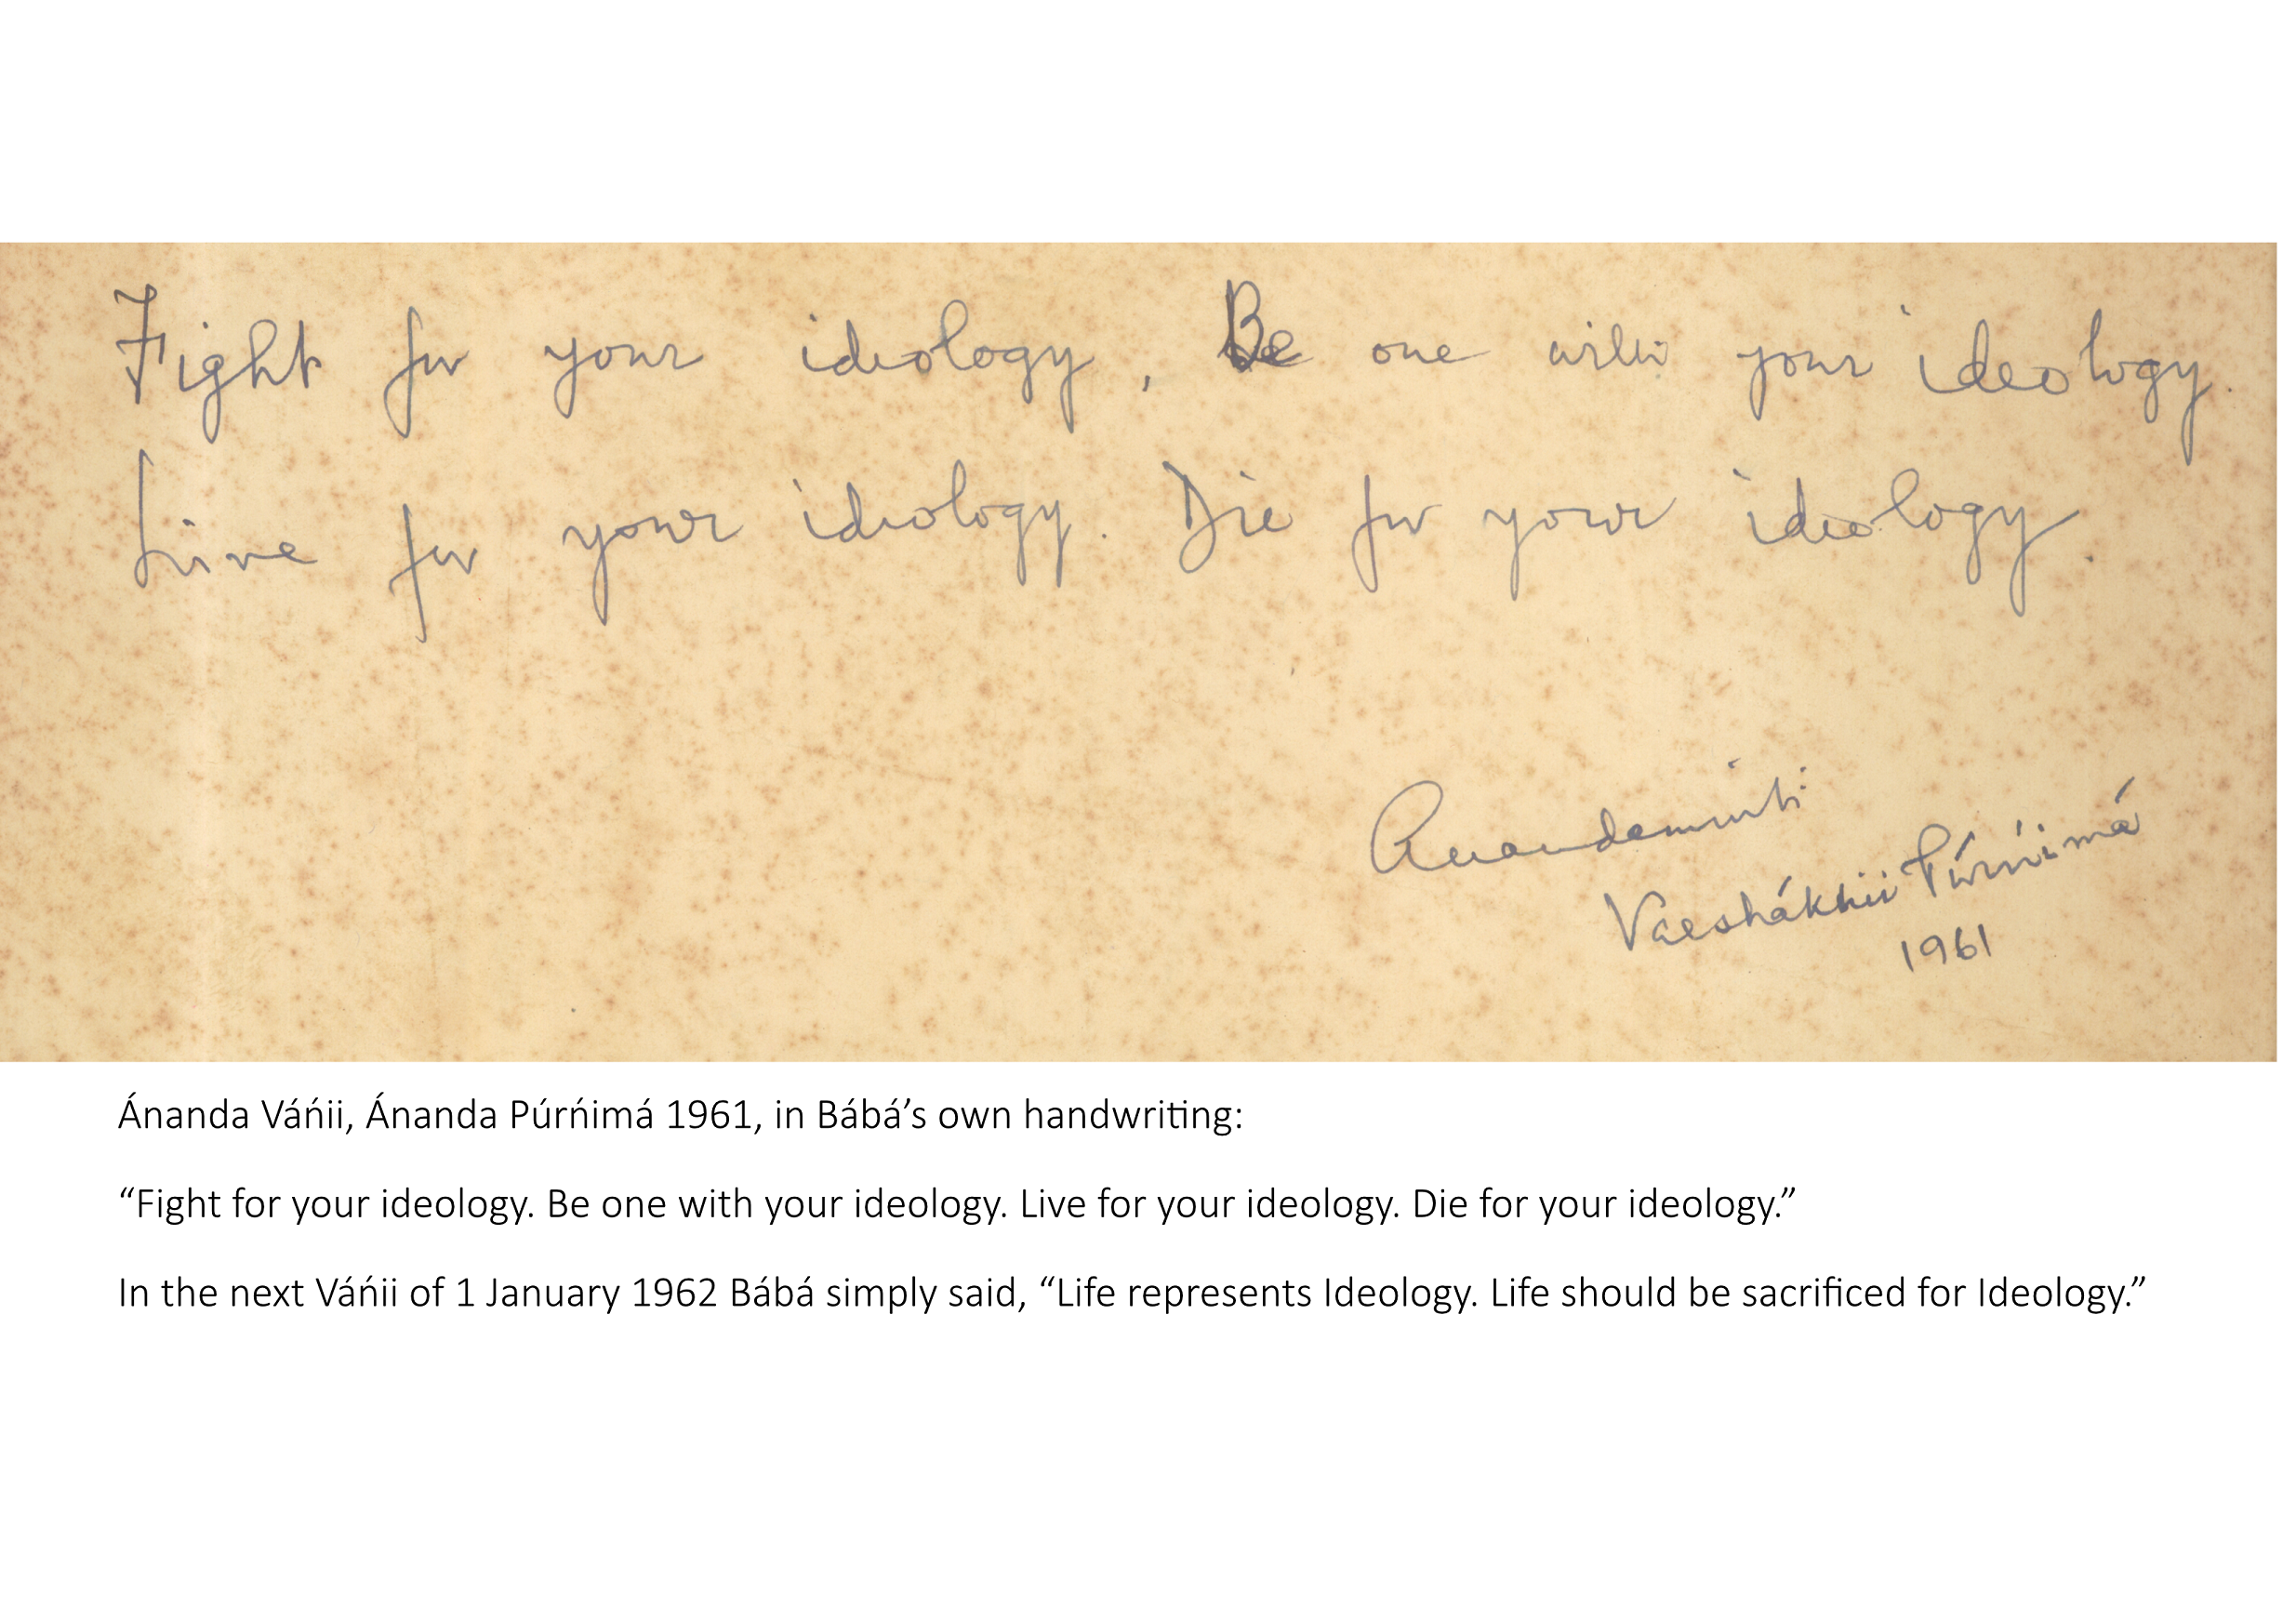 Fight for your ideology, Be one with your ideology.
Live for your ideology. Die for your ideology.
Anandamurti
Vaeshákhii Púrńimá
1961
Ánanda Váńii, Ánanda Púrńimá 1961, in Bábá’s own handwriting:
“Fight for your ideology. Be one with your ideology. Live for your ideology. Die for your ideology.”
In the next Váńii of 1 January 1962 Bábá simply said, “Life represents Ideology. Life should be sacrificed for Ideology.”